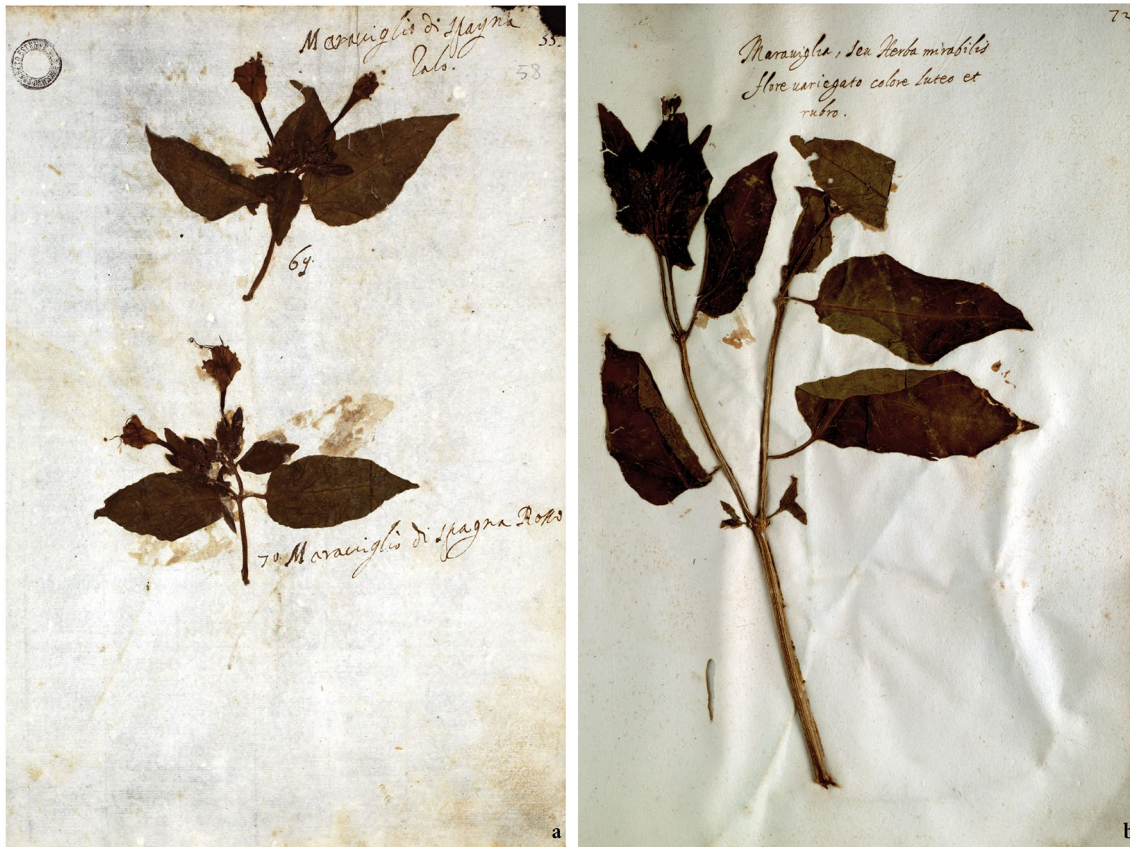 Maraviglio di Spagna
Zalo.
55.
58
69.
70 Maraviglio di Spagna Rosso
a
72
Maraviglia, seu Herba mirabilis
flore variegato colore luteo et
rubro.
b